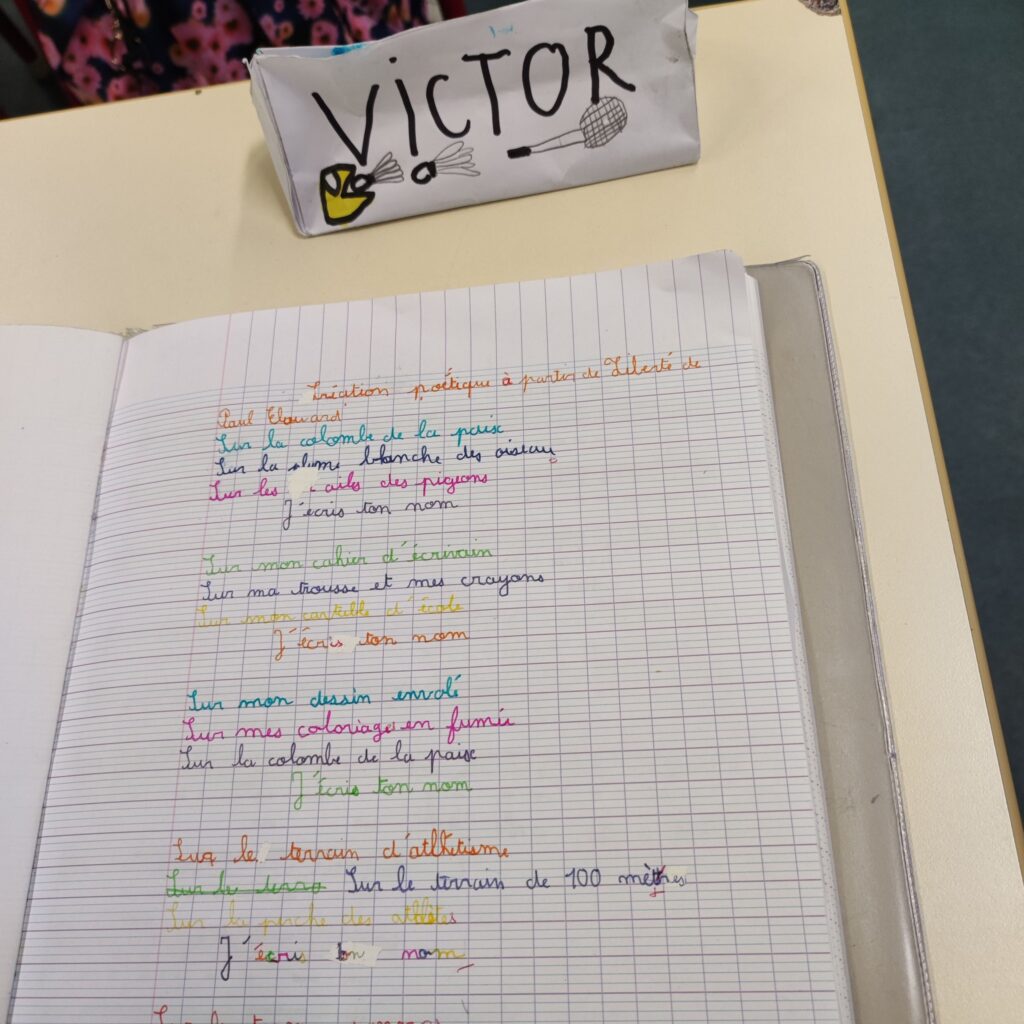 VICTOR
Création poétique à partir de Liberté de
Paul Elouard
Sur la colombe de la paise
Sur la plume blanche des oiseau
Sur les ailes des pigeons
J'écris ton nom
Sur mon cahier d'écrivain
Sur ma trousse et mes crayons
Sur mon cartable d'école
J'écris ton nom
Sur mon dessin envolé
Sur mes coloriages en fumée
Sur la colombe de la paise
J'écris ton nom
Sur le terrain d'athlétisme
Sur le terra Sur le terrain de 100 mètres
Sur la perche des athlètes
J'écris ton nom